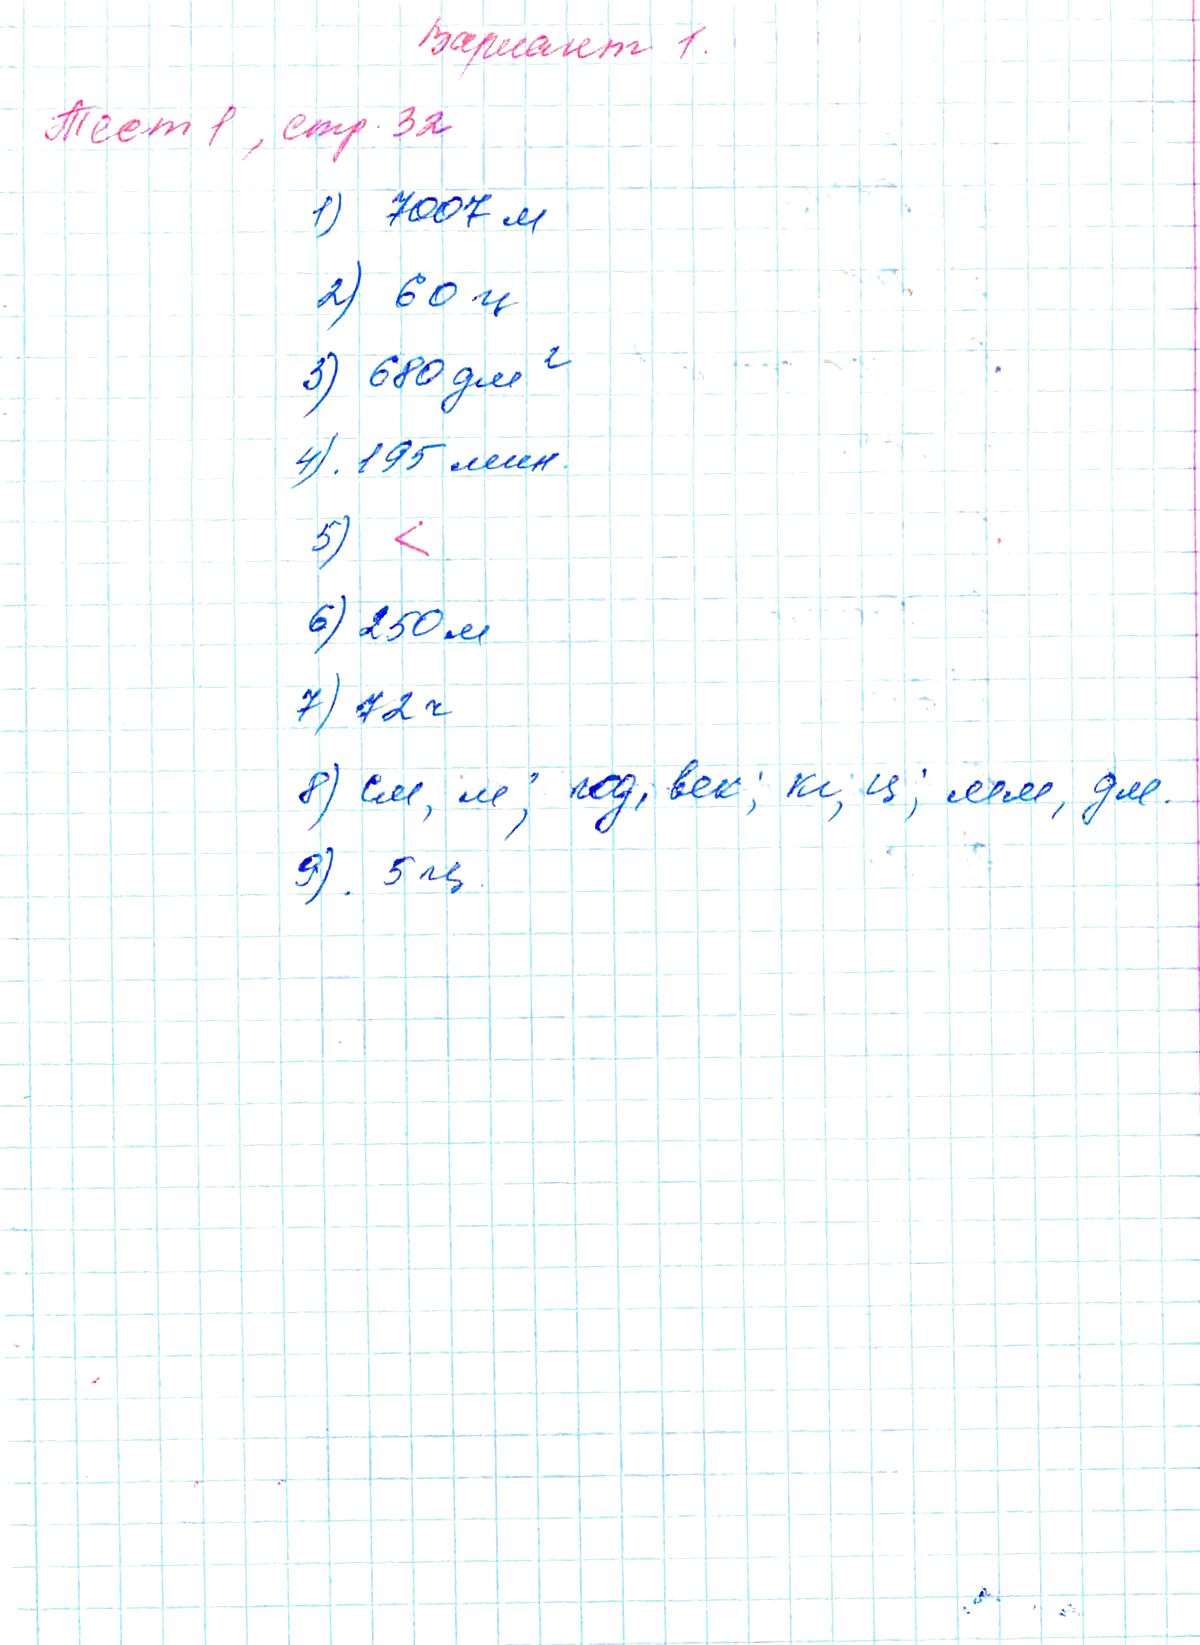 Вариант 1.
Тест 1, стр. 32
1) 7007 м
2) 60 ц
3) 680 дм²
4). 195 мин.
5) <
6) 250 м
7) 72 ч
8) см, м; год, век; кг, ц; мм, дм.
9). 5 ц.